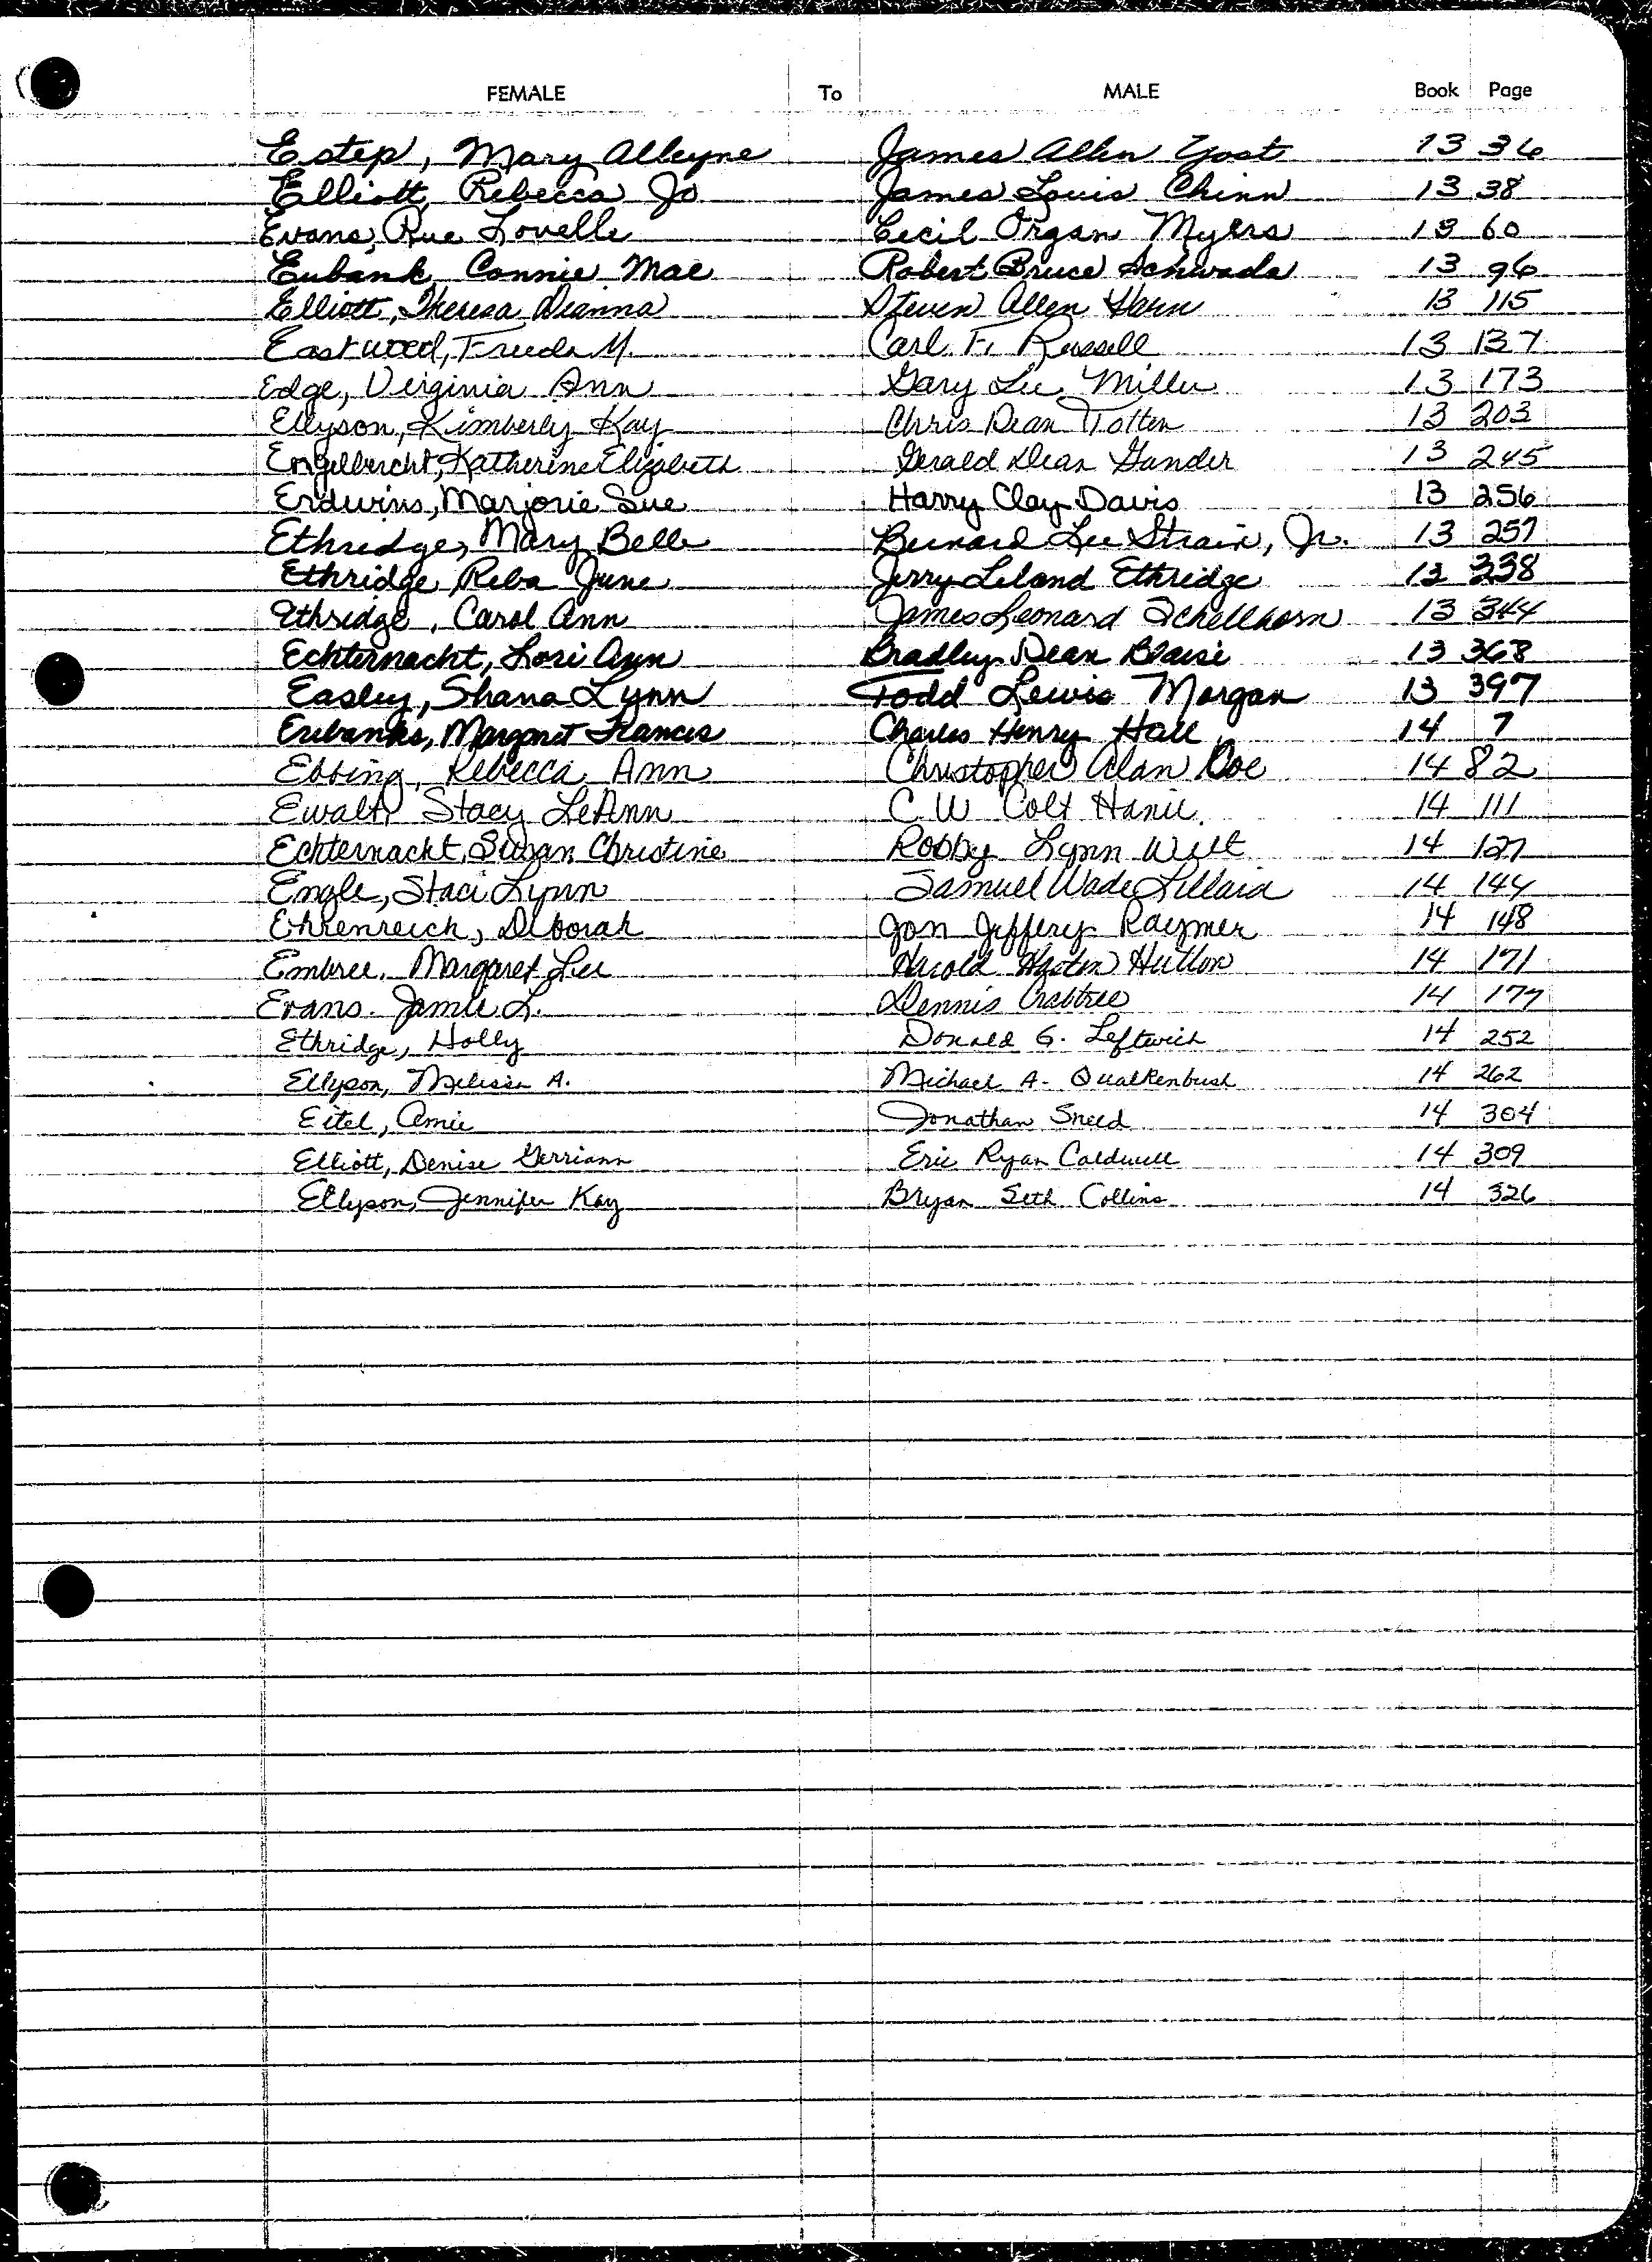 FEMALE To MALE Book Page
Estep, Mary Alleyne James Allen Yost 13 36
Elliott, Rebecca Jo James Louis Chinn 13 38
Evans, Rue Lovelle Cecil Organ Myers 13 60
Eubank, Connie Mae Robert Bruce Schwada 13 96
Elliott, Theresa Deanna Steven Allen 13 115
Eastwood, Freeda M. Carl F. Russell 13 137
Edge, Virginia Ann Gary Lee Miller 13 173
Ellyson, Kimberly Kay Chris Dean Totten 13 203
Engelbrecht, Katherine Elizabeth Gerald Dean Gander 13 245
Erdwins, Marjorie Sue Harry Clay Davis 13 256
Ethredge, Mary Belle Bernard Lee Strain, Jr. 13 257
Ethridge, Reba June Jerry Leland Ethridge 13 338
Ethridge, Carol Ann James Leonard Schellhorn 13 344
Echternacht, Lori Ann Bradley Dean Blaise 13 368
Easley, Shana Lynn Todd Lewis Morgan 13 397
Eubanks, Margaret Frances Charles Henry Hall 14 7
Ebbing, Rebecca Ann Christopher Alan Doe 14 82
Ewalt, Stacy LeAnn C W Colt 14 111
Echternacht, Susan Christine Robby Lynn Witt 14 127
Engle, Staci Lynn Samuel Wade Lillard 14 144
Ehrenreich, Deborah Jon Jeffery Raymer 14 148
Embree, Margaret Lee Harold Hutton 14 171
Evans, Jamie L. Dennis Crabtree 14 177
Ethridge, Holly Donald G. Leftwich 14 252
Ellyson, Melissa A. Michael A. Qualkenbush 14 262
Eitel, Amie Jonathan Sneed 14 304
Elliott, Denise Gerriann Eric Ryan Caldwell 14 309
Ellyson, Jennifer Kay Bryan Seth Collins 14 326